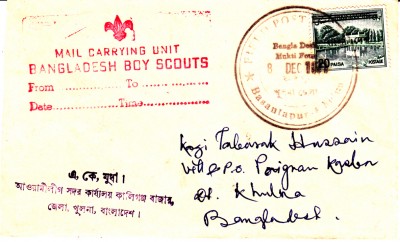 MAIL CARRYING UNIT
BANGLADESH BOY SCOUTS
From To
Date Time
FIELD POST
Bangla Desh
Mukti Fouz
8 DEC 1971
Basantapur
20 PAISA
Kazi Tabarak Hussain
Vill & P.O.
Dt. Khulna
Bangladesh.
এ, কে, মুধা।
আওয়ামীলীগ সদর কার্যালয় কালিগঞ্জ বাজার,
জেলা, খুলনা, বাংলাদেশ।